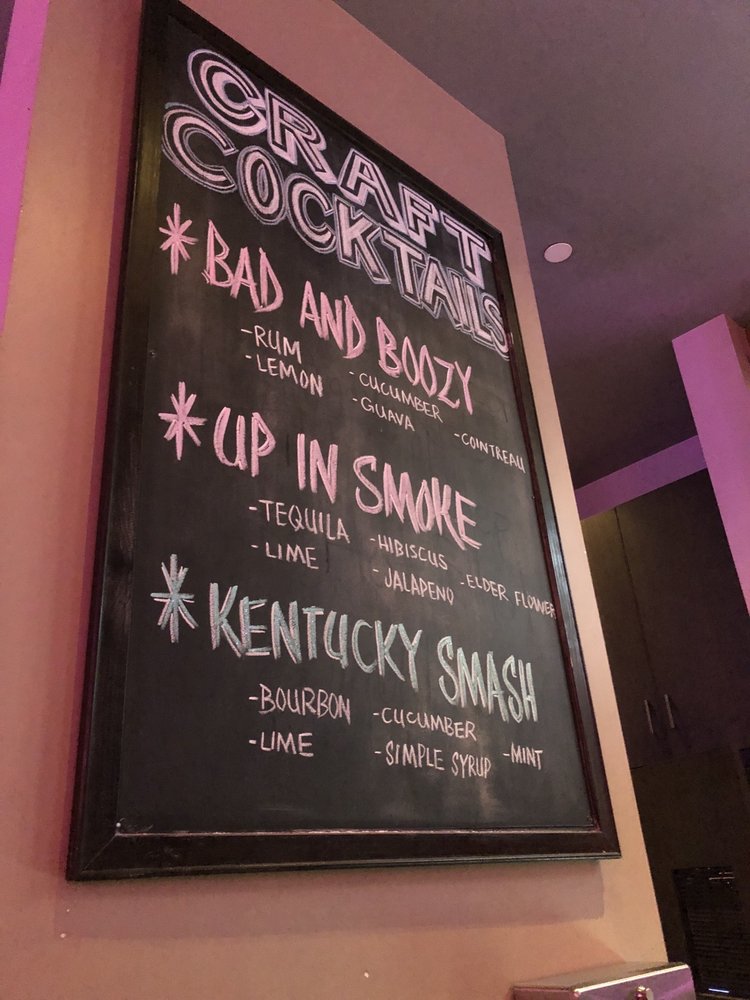 CRAFT
COCKTAILS
*BAD AND BOOZY
-RUM
-LEMON
-CUCUMBER
-GUAVA
-COINTREAU
*UP IN SMOKE
-TEQUILA
-LIME
-HIBISCUS
-JALAPENO
-ELDER FLOWER
*KENTUCKY SMASH
-BOURBON
-LIME
-CUCUMBER
-SIMPLE SYRUP
-MINT